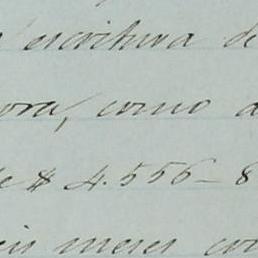 escritura de
ora, como a
e $ 4.556-8
eis meses con